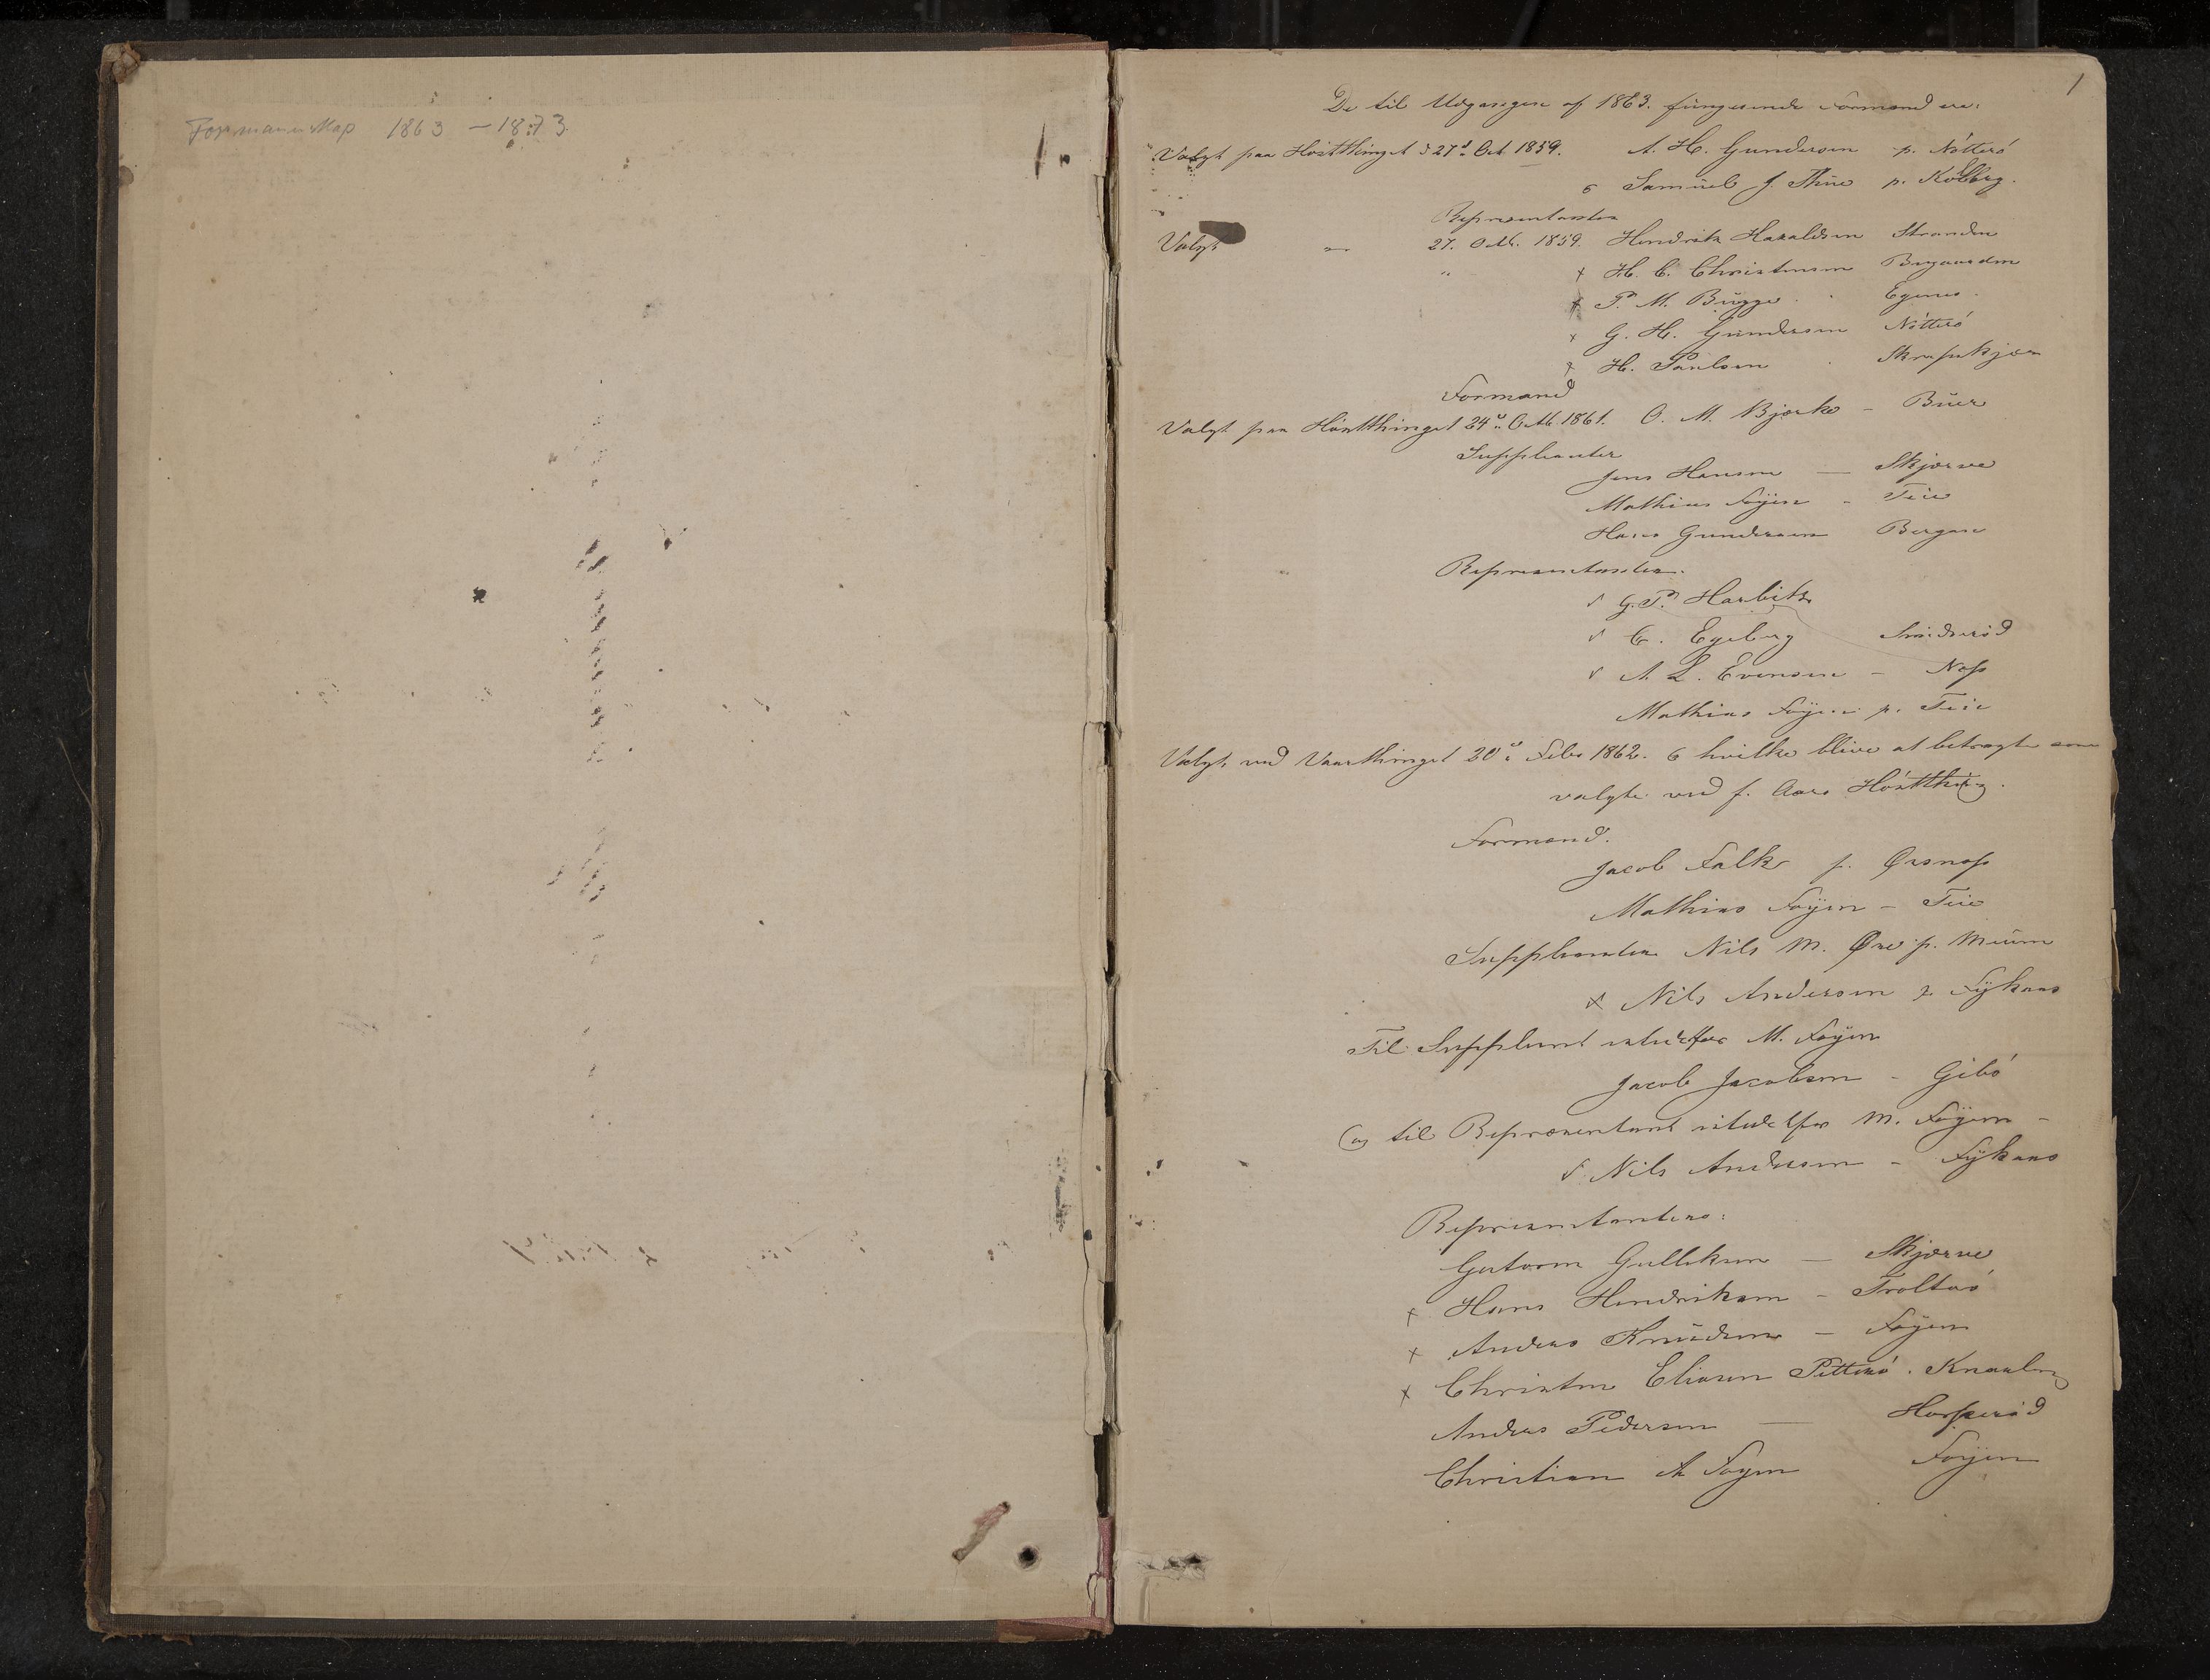 Formannskap 1863 - 1873
1
De til Udgangen af 1863. fungerende Formænd ere:
Valgt paa Høstthinget d 27d. Oct. 1859. A. H. Gundersen p. Nötterö
Samuel J. Thue p. Kölberg.
Repræsentanter
Valgt " 27. Octb. 1859. Hendrik Haraldsen Stranden
" x H. C. Christensen Brygaarden
x P. M. Bügge Egenes
x G. H. Gündersen Nötterö
x H. Paulsen Skrapekjær
Formænd
Valgt paa Høstthinget 24d. Octb 1861. O. M. Bjerke - Büer
Supplianter
Jens Hansen — Skjærve
Mathias Föÿen - Teie
Hans Gundersen Bergan
Repræsentanter.
G. P. Harbitz
C. Egeberg Smidsröd
A. L. Evensen - Næss
Mathias Föÿen p. Teie
Valgt ved Vaarthinget 20d. Febr 1862. hvilke blive at betragte som
valgte ved f. Aars Høstthing.
Formænd.
Jacob Falk p. Ørsnæs
Mathias Föÿen - Teie
Supplianter Nils M. Øre p. Meüm
x Nils Andersen p. Fÿkaas
Til Suppliant istedetfor M. Föÿen
Jacob Jacobsen - Gibö
og til Repræsentant istedetfor M. Föÿen -
Nils Andersen - Fÿkaas
Repræsentantere:
Gutorm Gulliksen — Skjærve
x Hans Hendriksen - Troltaö
x Anders Knüdsen - Föÿen
x Christen Eliasen Pitterö. Knarberg
Andreas Pedersen — Hasseröd
Christian A Föyen Föÿen